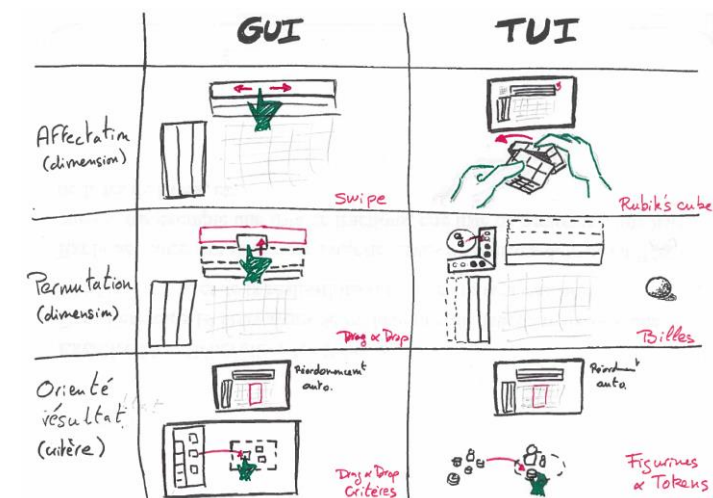 GUI
TUI
Affectation
(dimension)
Swipe
Rubik's cube
Permutation
(dimension)
Drag & Drop
Billes
Orienté
résultat
(critère)
Réordonnancement
auto.
Drag & Drop
Critères
auto.
Figurines
& Tokens